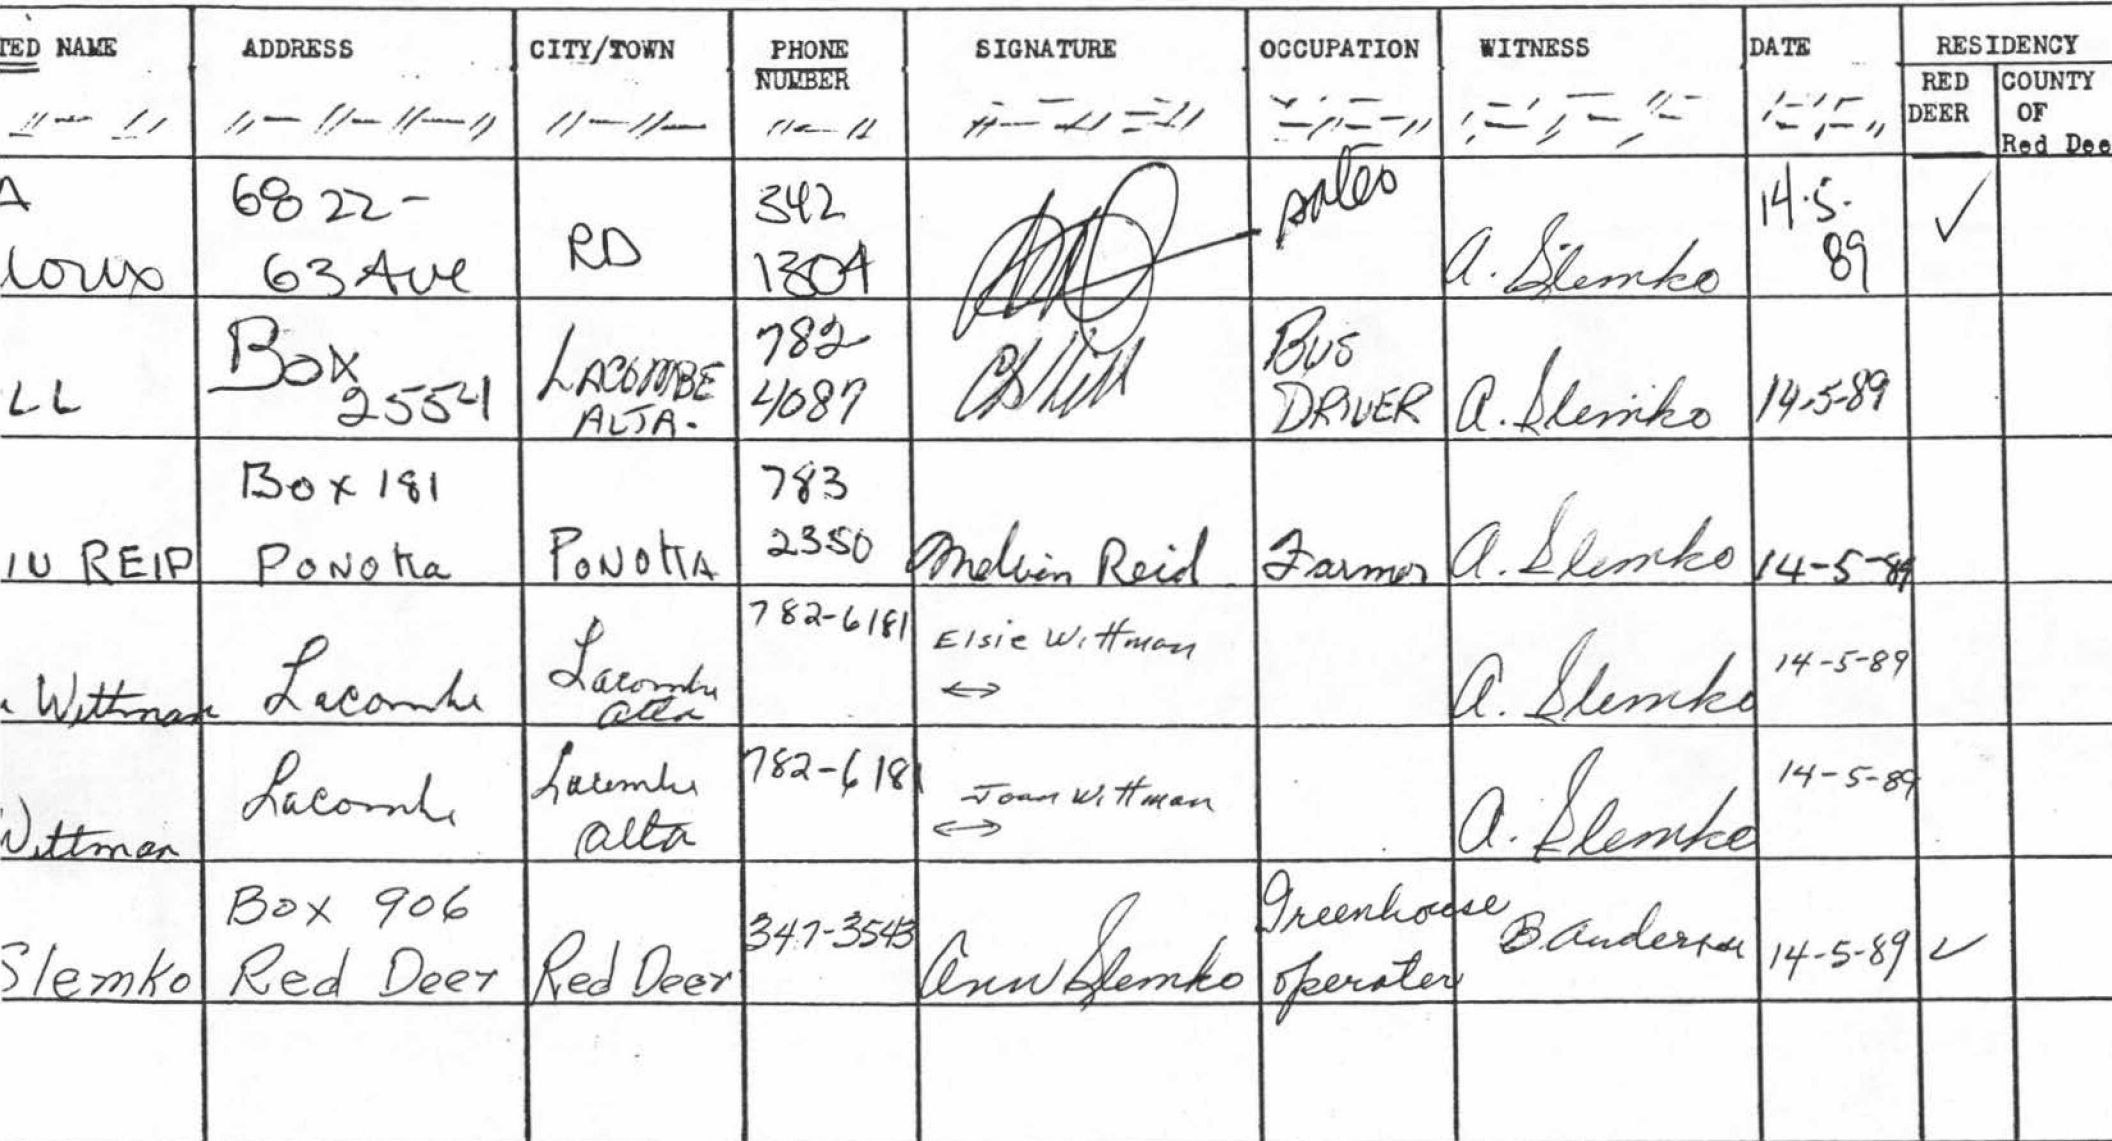 TED NAME ADDRESS CITY/TOWN PHONE NUMBER SIGNATURE OCCUPATION WITNESS DATE RESIDENCY
RED DEER COUNTY OF Red Dee
A 6822- 342 sales 14.5.
loux 63 Ave RD 1304 A. Slemko 89 ✓
LL Box 2554 LACOMBE ALTA. 782 4087 BUS DRIVER A. Slemko 14-5-89
Box 181 783
REID PONOKA PONOKA 2350 Melvin Reid Farmer A. Slemko 14-5-89
Wittman Lacombe Lacombe alta 782-6181 Elsie Wittman A. Slemko 14-5-89
Wittman Lacombe Lacombe alta 782-6181 Joan Wittman A. Slemko 14-5-89
Box 906 Greenhouse
Slemko Red Deer Red Deer 347-3543 Ann Slemko operater B. Anderson 14-5-89 ✓